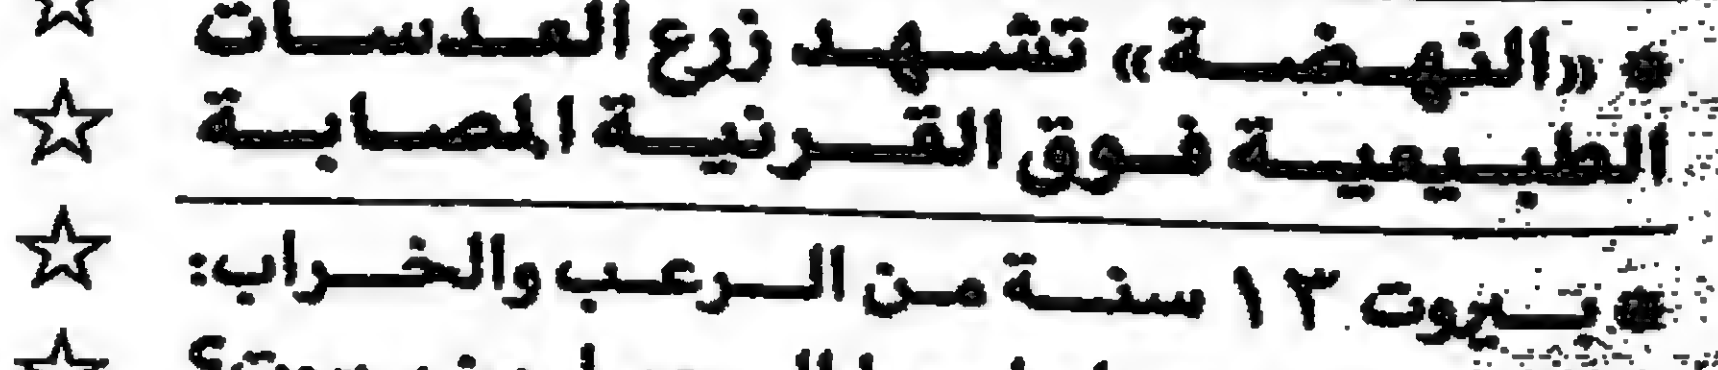 * «النهضة» تشهد زرع العدسات
الطبيعية فوق القرنية المصابة
* بيروت ١٣ سنة من الرعب والخراب: